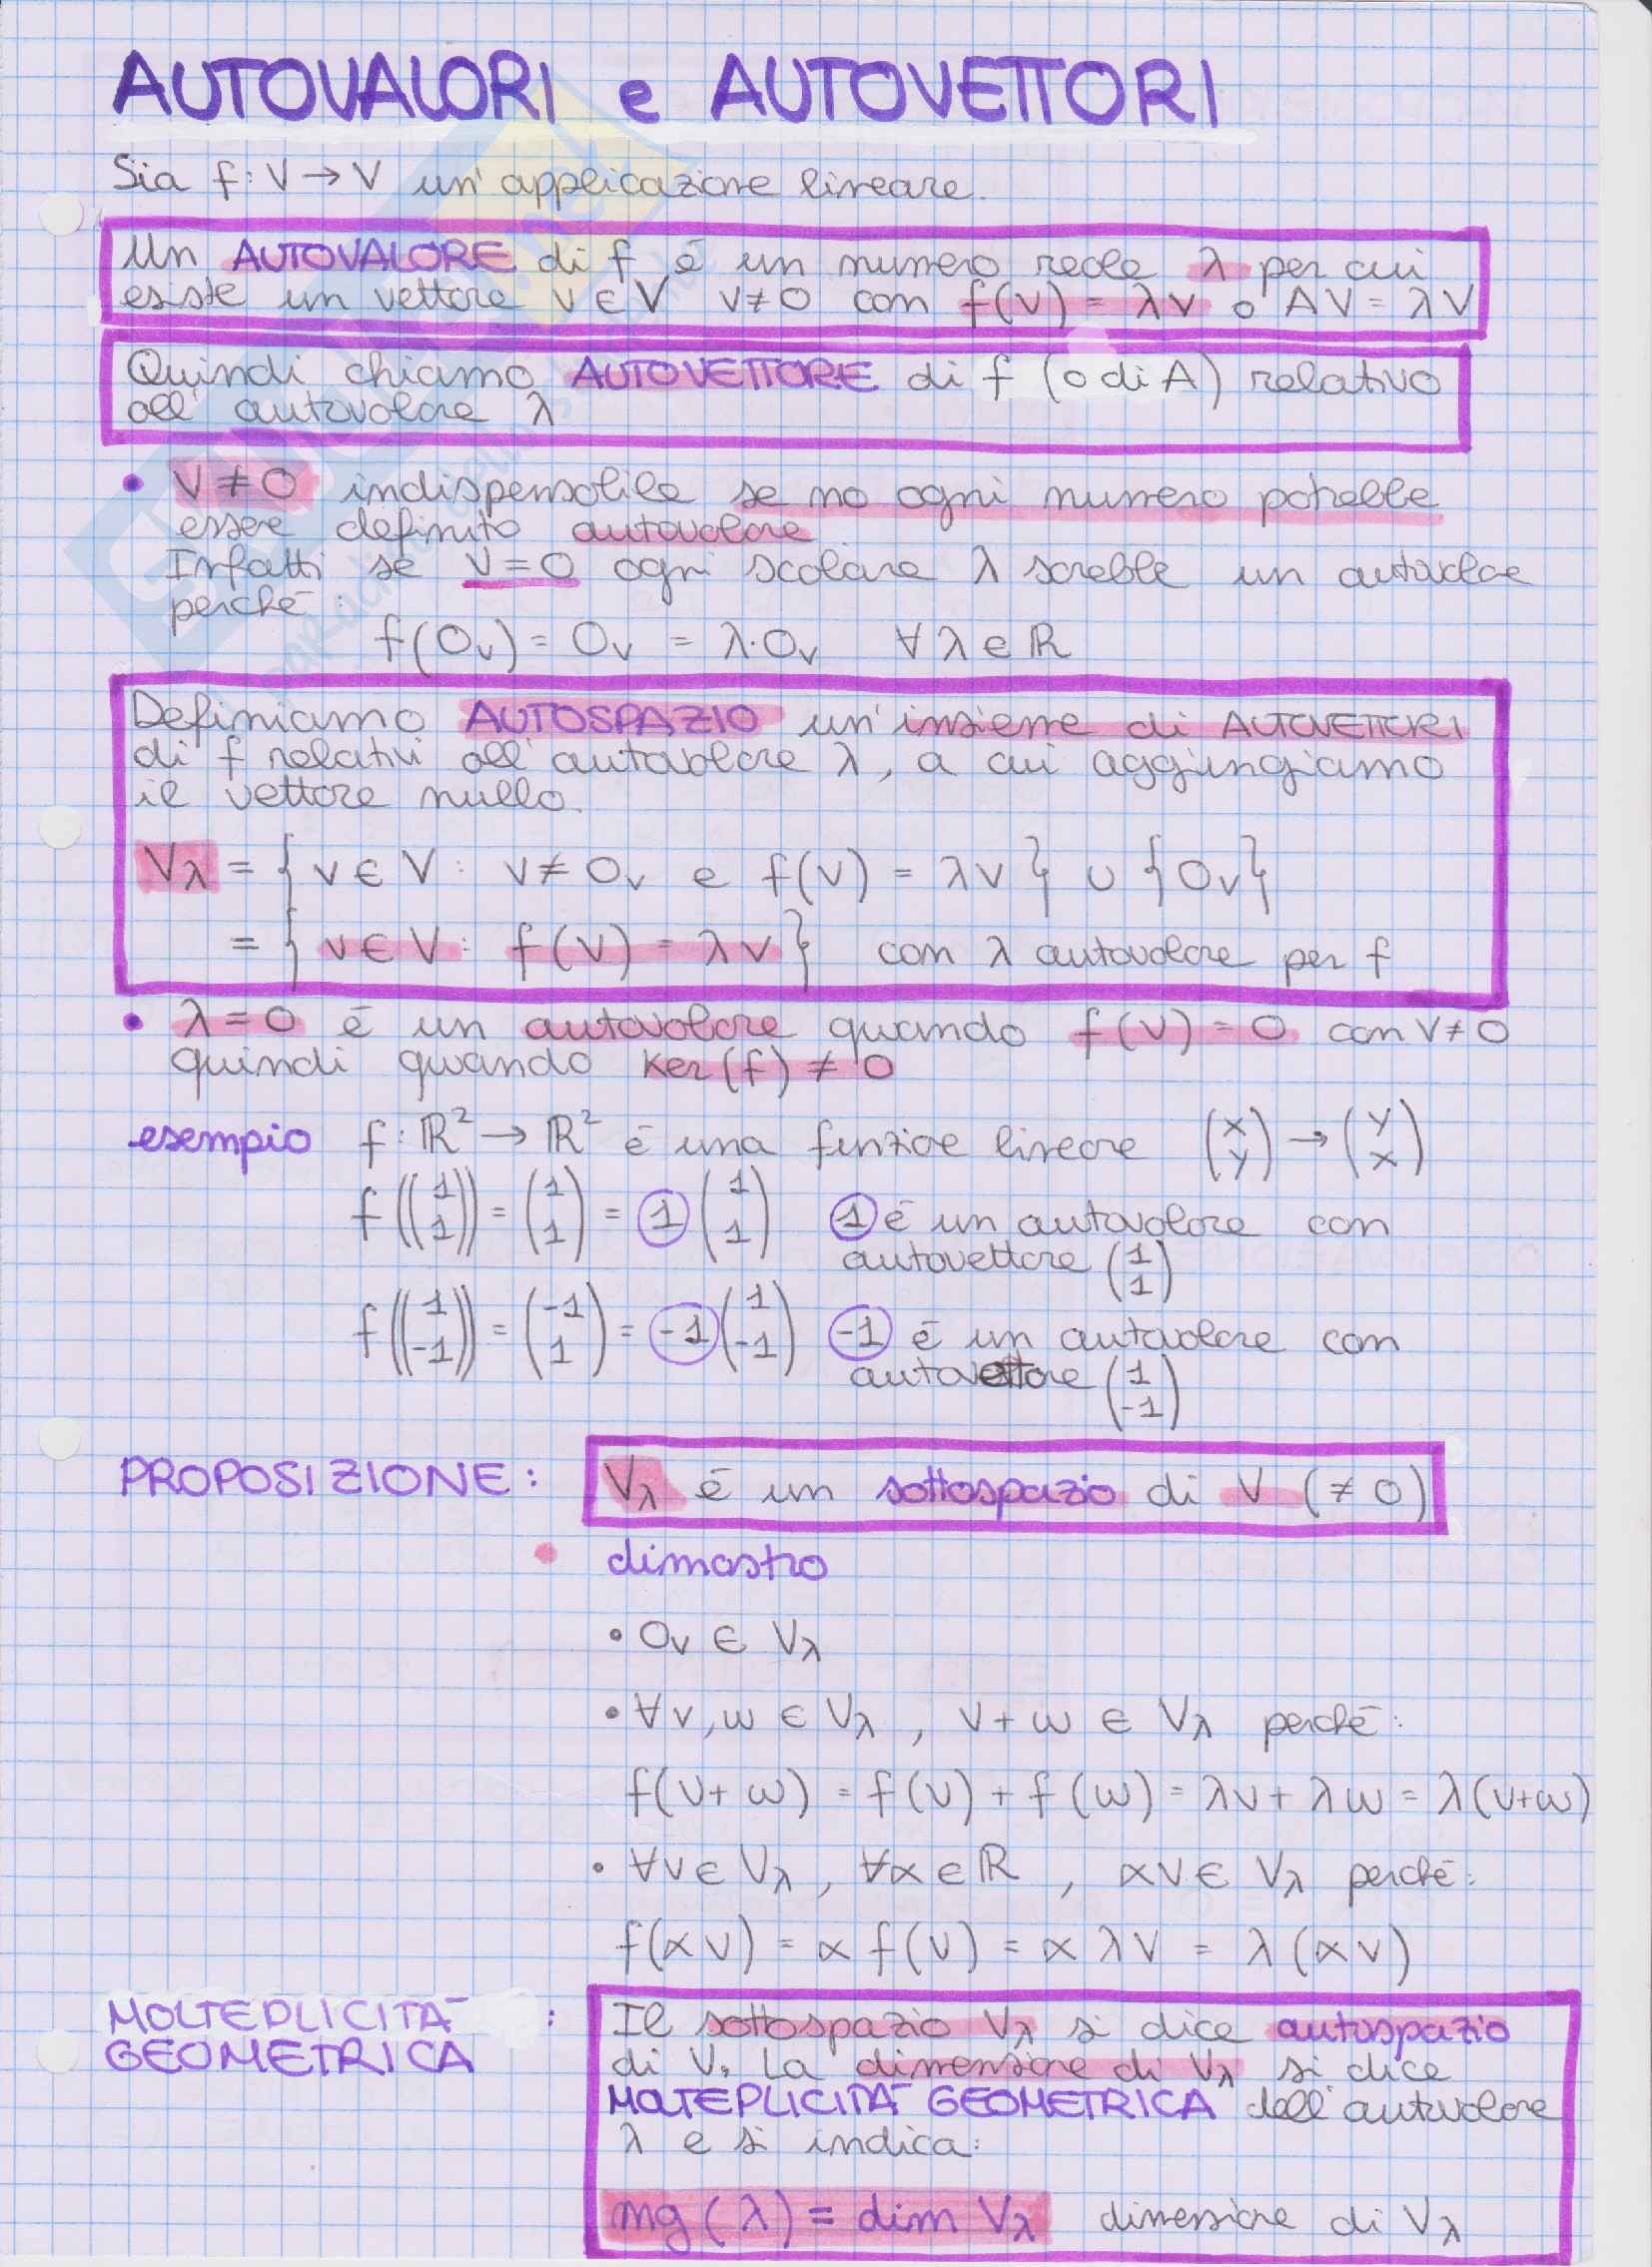 AUTOVALORI e AUTOVETTORI
Sia f: V → V un'applicazione lineare.
Un AUTOVALORE di f é un numero reale λ per cui
esiste un vettore v ∈ V v≠0 con f(v) = λv o AV = λV
Quindi chiamo AUTOVETTORE di f (o di A) relativo
all'autovalore λ
• V ≠ 0 indispensabile se no ogni numero potrebbe
essere definito autovalore
Infatti se V=0 ogni scalare λ sarebbe un autovalore
perché:
f(0v) = 0v = λ·0v ∀ λ ∈ ℝ
Definiamo AUTOSPAZIO un'insieme di AUTOVETTORI
di f relativi all'autovalore λ, a cui aggiungiamo
il vettore nullo.
Vλ = { v ∈ V : v ≠ 0v e f(v) = λv } ∪ {0v}
= { v ∈ V : f(v) = λv } con λ autovalore per f
• λ=0 é un autovalore quando f(v) = 0 con V≠0
quindi quando Ker(f) ≠ 0
esempio f: ℝ² → ℝ² é una funzioe lineare (x y) → (y x)
f((1 1)) = (1 1) = 1 (1 1) 1 é un autovalore con
autovettore (1 1)
f((1 -1)) = (-1 1) = -1 (1 -1) -1 é un autovalore con
autovettore (1 -1)
PROPOSIZIONE: Vλ é un sottospazio di V (≠ 0)
• dimostro
• 0v ∈ Vλ
• ∀ v,w ∈ Vλ , v+w ∈ Vλ perché:
f(v+w) = f(v) + f(w) = λv + λw = λ(v+w)
• ∀v ∈ Vλ , ∀α ∈ ℝ , αv ∈ Vλ perché:
f(αv) = α f(v) = α λv = λ(αv)
MOLTEPLICITÀ GEOMETRICA :
Il sottospazio Vλ si dice autospazio
di V. La dimensione di Vλ si dice
MOLTEPLICITÀ GEOMETRICA dell'autovalore
λ e si indica:
mg(λ) = dim Vλ dimensione di Vλ